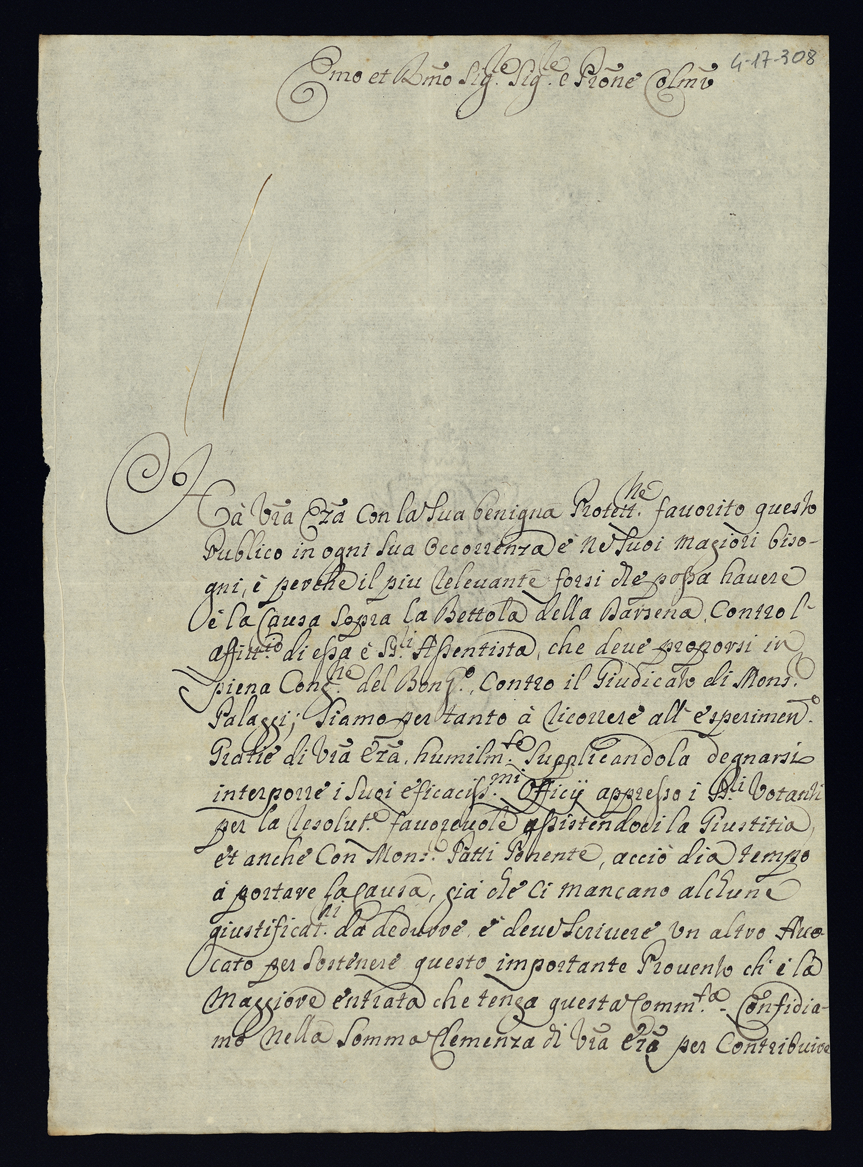 4-17-308
Emo et Rmo Sig.re Sig.re e Prōne Colmo
Hà Vrā Emza con la sua benigna Protett.ne favorito questo
Publico in ogni sua occorrenza e ne suoi magiori biso-
gni, e perche il piu relevante forsi che possa havere
è la Causa sopra la Bettola della Barsena, Contro l'
affitt.rio di essa è SS.ri Assentista, che deve proporsi in
piena Cong.ne del Bong.o, Contro il Giudicato di Mons.r
Palazzi; Siamo pertanto à ricorrere all' esperiment.e
Gratie di Vrā Emza, humilm.te Supplicandola degnarsi
interporre i suoi efficaciss.mi Officij appresso i SS.ri Votanti
per la resolut.e favorevole assistendoci la Giustitia,
et anche Con Mons.r Patti Ponente, acciò dia tempo
à portare la Causa, già che ci mancano alchune
giustificat.ni da dedurre, e deve scrivere un altro Avo-
cato per sostenere questo importante Provento ch' è la
Maggiore entrata che tenga questa Comm.tà. Confidia-
mo nella somma Clemenza di Vrā Emza per Contribuire